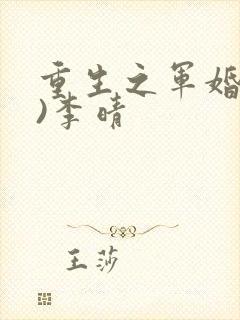 重生之军婚
)李晴
王莎